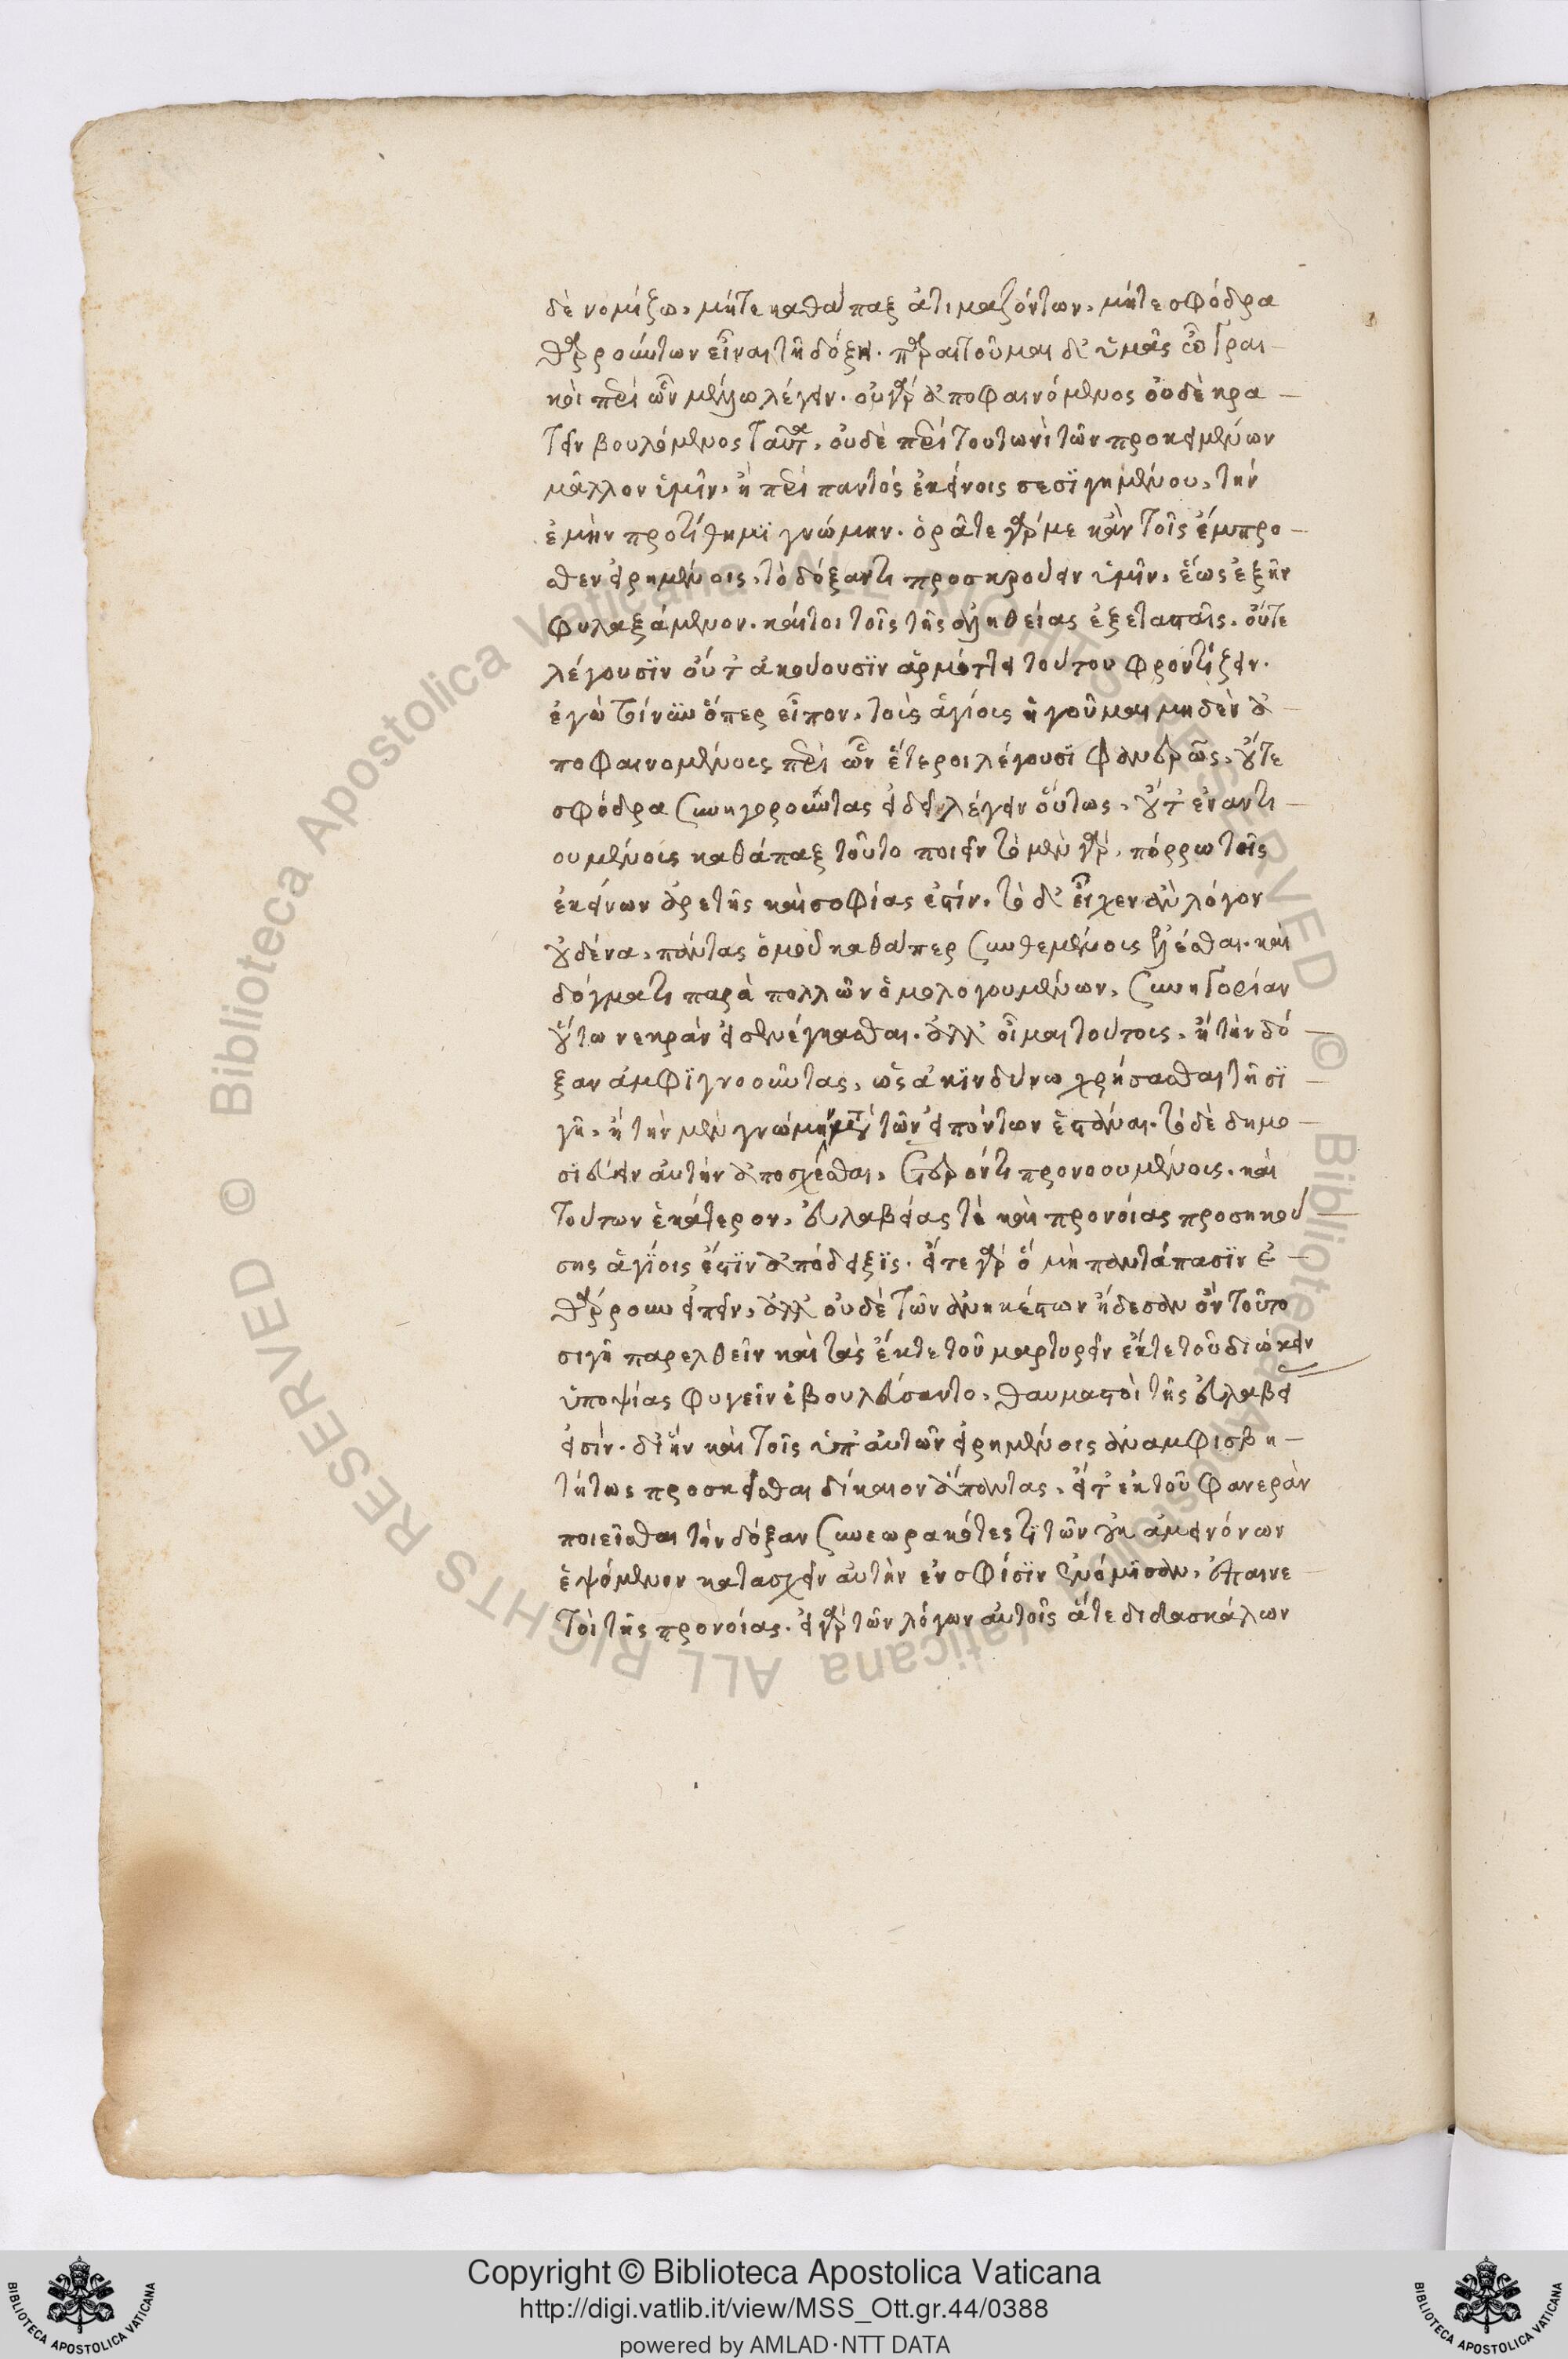 δὲ νομίζω, μήτε καθάπαξ ἀτιμαζόντων, μήτε σφόδρα
θαρρούντων εἶναι τῇ δόξῃ. παραιτοῦμαι δ' ὑμᾶς ὦ Γραι-
κοὶ περὶ ὧν μέλλω λέγειν. οὐ γὰρ ἀποφαινόμενος οὐδὲ κρα-
τεῖν βουλόμενος ταῦτα, οὐδὲ περὶ τουτωνὶ τῶν προκειμένων
μᾶλλον ὑμῖν, ἢ περὶ παντὸς ἐκείνοις σεσιγημένου, τὴν
ἐμὴν προτίθημι γνώμην. ὁρᾶτε γάρ με κἀν τοῖς ἔμπρο-
σθεν εἰρημένοις, τὸ δόξαντι προσκρούειν ὑμῖν, ἕως ἐξῆν
φυλαξάμενον. καίτοι τοῖς τῆς ἀληθείας ἐξετασταῖς, οὔτε
λέγουσιν οὔτ' ἀκούουσιν ἁρμόττει τούτου φροντίζειν.
ἐγὼ τοίνυν ὅπερ εἶπον, τοὺς ἁγίους ἡγοῦμαι μηδὲν ἀ-
ποφαινομένους περὶ ὧν ἕτεροι λέγουσι φανερῶς, οὔτε
σφόδρα συνηγοροῦντας εἰ δεῖ λέγειν οὕτως, οὔτ' ἐναντι-
ουμένους καθάπαξ τοῦτο ποιεῖν τὸ μὲν γάρ, πόρρω τῆς
ἐκείνων ἀρετῆς καὶ σοφίας ἐστίν. τὸ δ' εἶχεν ἂν λόγον
οὐδένα, πάντας ὁμοῦ καθάπερ συνθεμένους ἑλέσθαι. καὶ
δόγματι παρὰ πολλῶν ὁμολογουμένων, συνηγορίαν
οὕτω νεκρὰν εἰσενέγκασθαι. ἀλλ' οἶμαι τούτους, ἢ τὴν δό-
ξαν ἀμφιγνοοῦντας, ὡς ἀκινδύνῳ χρήσασθαι τῇ σι-
γῇ, ἢ τὴν μὲν γνώμην μετὰ τῶν εἰπόντων ἑστάναι. τὸ δὲ δημο-
σιεύειν αὐτὴν ἀποσχέσθαι, προνοουμένους. καὶ
τούτων ἑκάτερον, εὐλαβείας τε καὶ προνοίας προσηκού-
σης ἁγίοις ἐστὶν ἀπόδειξις. εἴτε γὰρ ὃ μὴ παντάπασιν ἐ-
θάρρουν εἰπεῖν, ἀλλ' οὐδὲ τῶν ἀνηκέστων ᾔδεσαν ὂν τοῦτο
σιγῇ παρελθεῖν καὶ τὰς ἔκ τε τοῦ μαρτυρεῖν ἔκ τε τοῦ διώκειν
ὑποψίας φυγεῖν ἐβουλεύσαντο, θαυμαστοὶ τῆς εὐλαβεί
εἰσίν. δι' ἣν καὶ τοῖς ὑπ' αὐτῶν εἰρημένοις ἀναμφισβη-
τήτως προσκεῖσθαι δίκαιον ἅπαντας, εἴτ' ἐκ τοῦ φανερὰν
ποιεῖσθαι τὴν δόξαν συνεωρακότες τι τῶν οὐκ ἀμεινόνων
ἑψόμενον κατασχεῖν αὐτὴν ἐν σφίσιν ἐνόμισαν, ἐπαινε-
τοὶ τῆς προνοίας. εἰ γὰρ τῶν λόγων αὐτοῖς ἅτε διδασκάλων
Copyright © Biblioteca Apostolica Vaticana
http://digi.vatlib.it/view/MSS_Ott.gr.44/0388
powered by AMLAD·NTT DATA
BIBLIOTECA APOSTOLICA VATICANA
BIBLIOTECA APOSTOLICA VATICANA
© Biblioteca Apostolica Vaticana ALL RIGHTS RESERVED
© Biblioteca Apostolica Vaticana ALL RIGHTS RESERVED